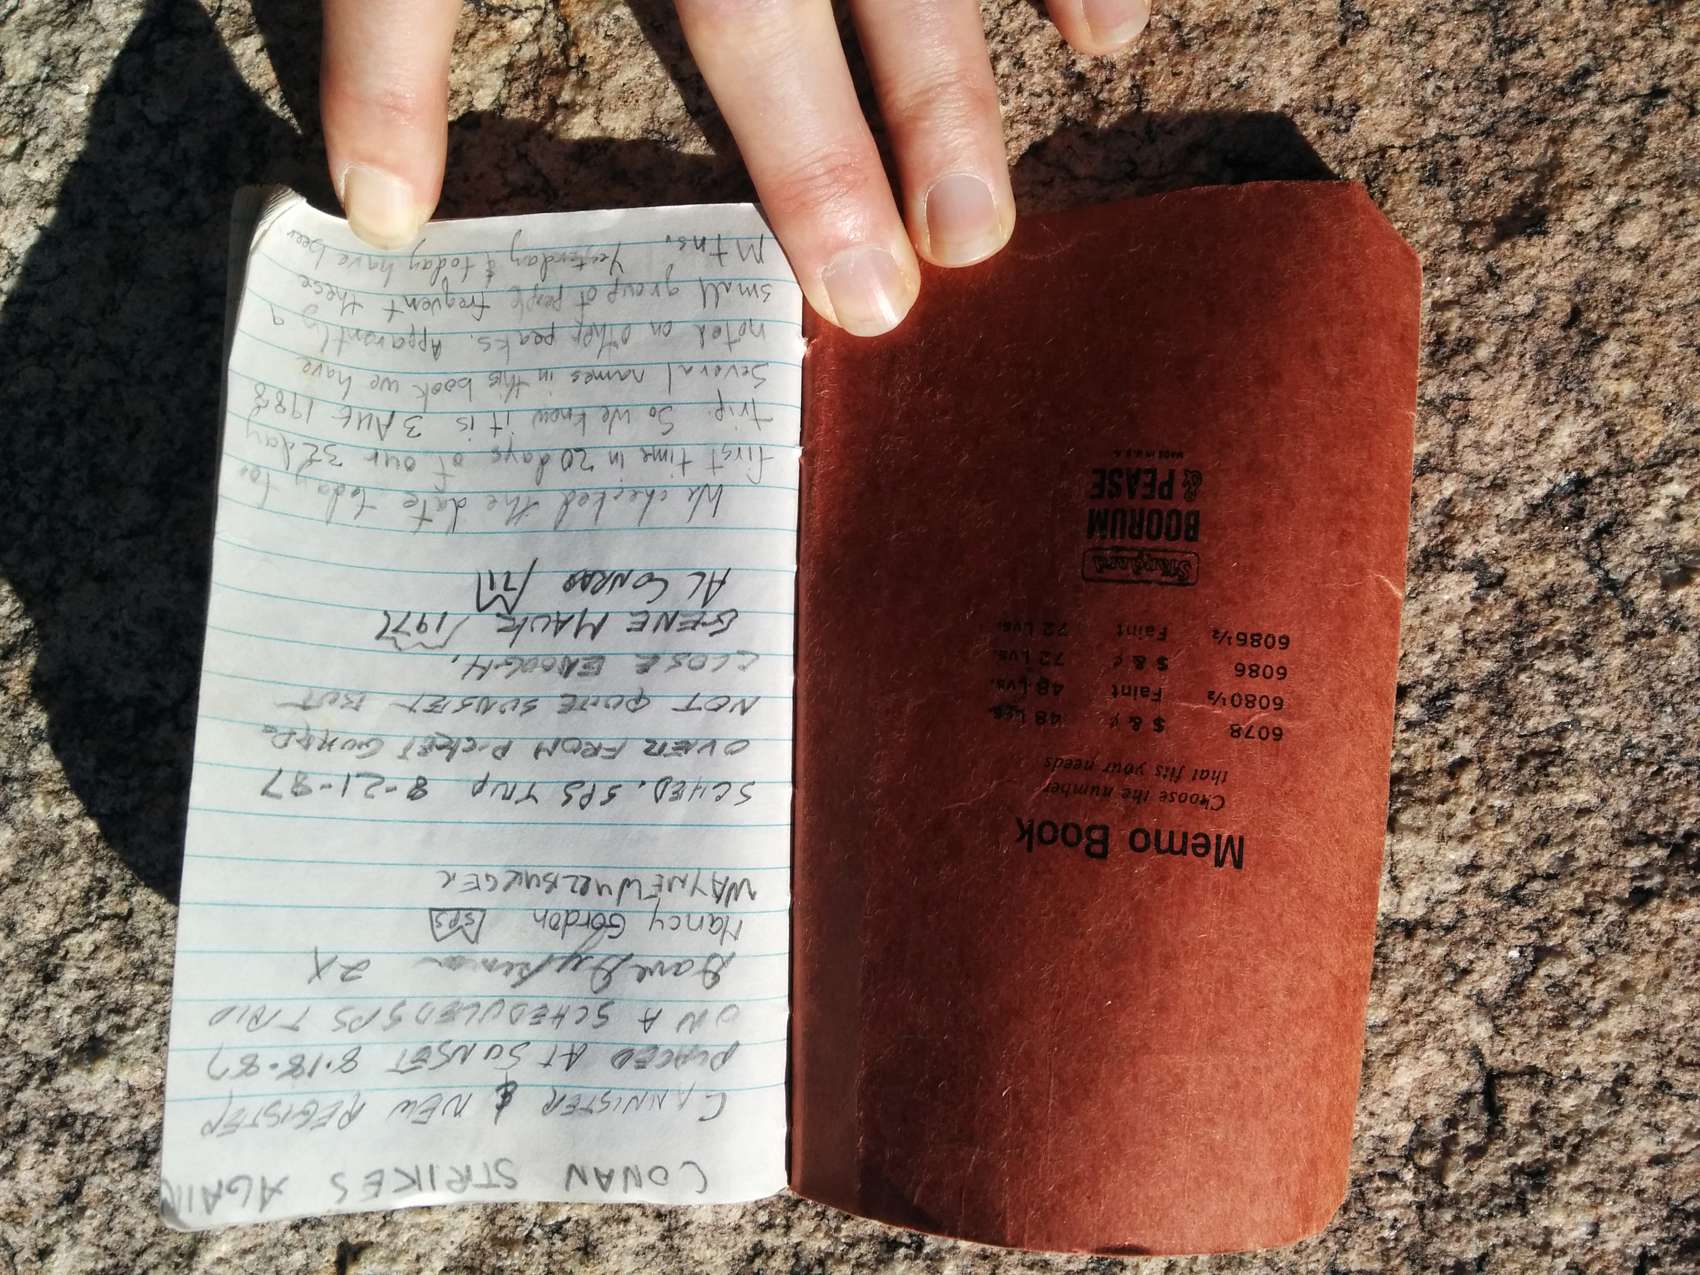 Memo Book
Choose the number
that fits your needs
6078 $ & ¢ 48 Lvs.
6080½ Faint 48 Lvs.
6086 $ & ¢ 72 Lvs.
6086½ Faint 72 Lvs.
Standard
BOORUM
& PEASE
MADE IN U.S.A.
CONAN STRIKES AGAIN
CANNISTER & NEW REGISTER
PLACED AT SUNSET 8-18-87
ON A SCHEDULED SPS TRIP
Dave 2X
Nancy Gordon SPS
WAYNE
SCHED. SPS TRIP 8-21-87
OVER FROM PICKET GUARD
NOT QUITE SUNSET BUT
CLOSE ENOUGH.
GENE MAUK 1977
AL CONRAD
We checked the date today for
first time in 20 days of our 32 day
trip. So we know it is 3 AUG 1988
Several names in this book we have
noted on other peaks. Apparently a
small group of people frequent these
Mtns. Yesterday & today have been